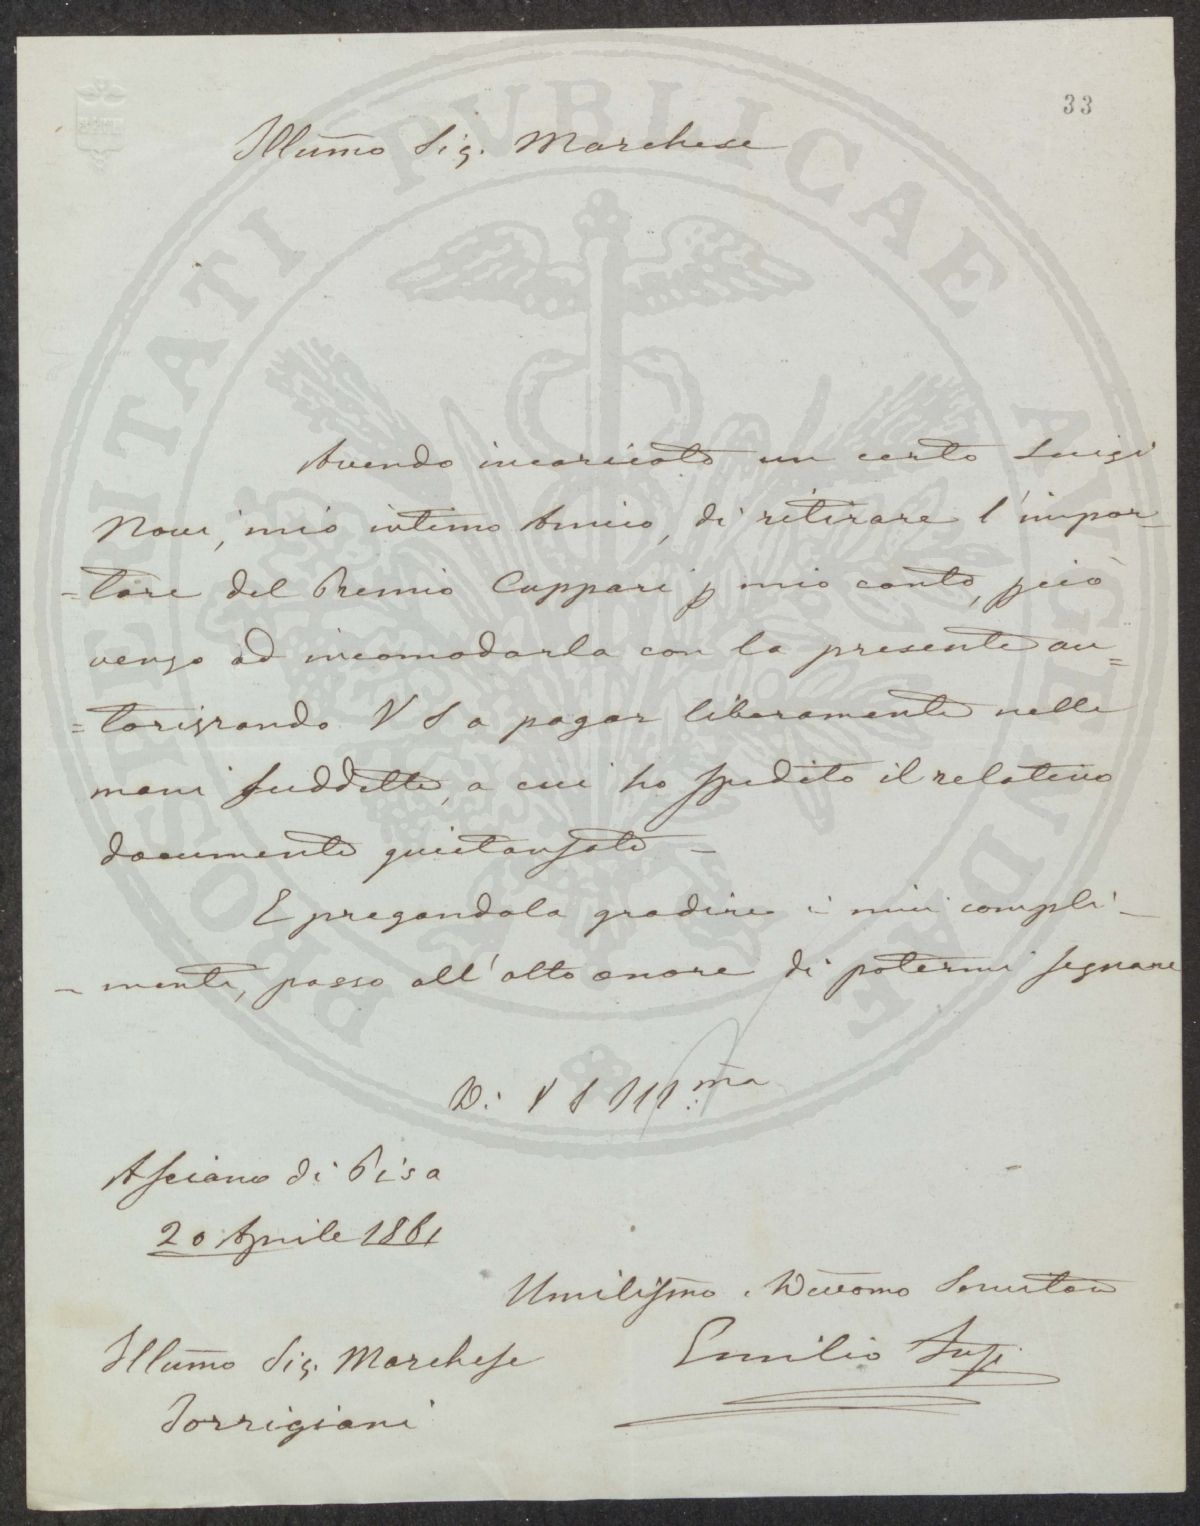 33
Illumo Sig. Marchese
Avendo incaricato un certo Luigi
mio intimo Amico, di ritirare l'impor-
=tare del Premio Cuppari p mio conto, pciò
vengo ad incomodarla con la presente au=
=torizzando V S a pagar liberamente nelle
mani suddette, a cui ho spedito il relativo
documento quietanzato –
E pregandola gradire i miei compli-
- menti, passo all'alto onore di potermi segnare
Di V S Ill:ma
Asciano di Pisa
20 Aprile 1861
Umilissmo Devomo Servitore
Emilio
Illumo Sig. Marchese
Torrigiani
PROSPERITATI PVBLICAE AVGENDAE